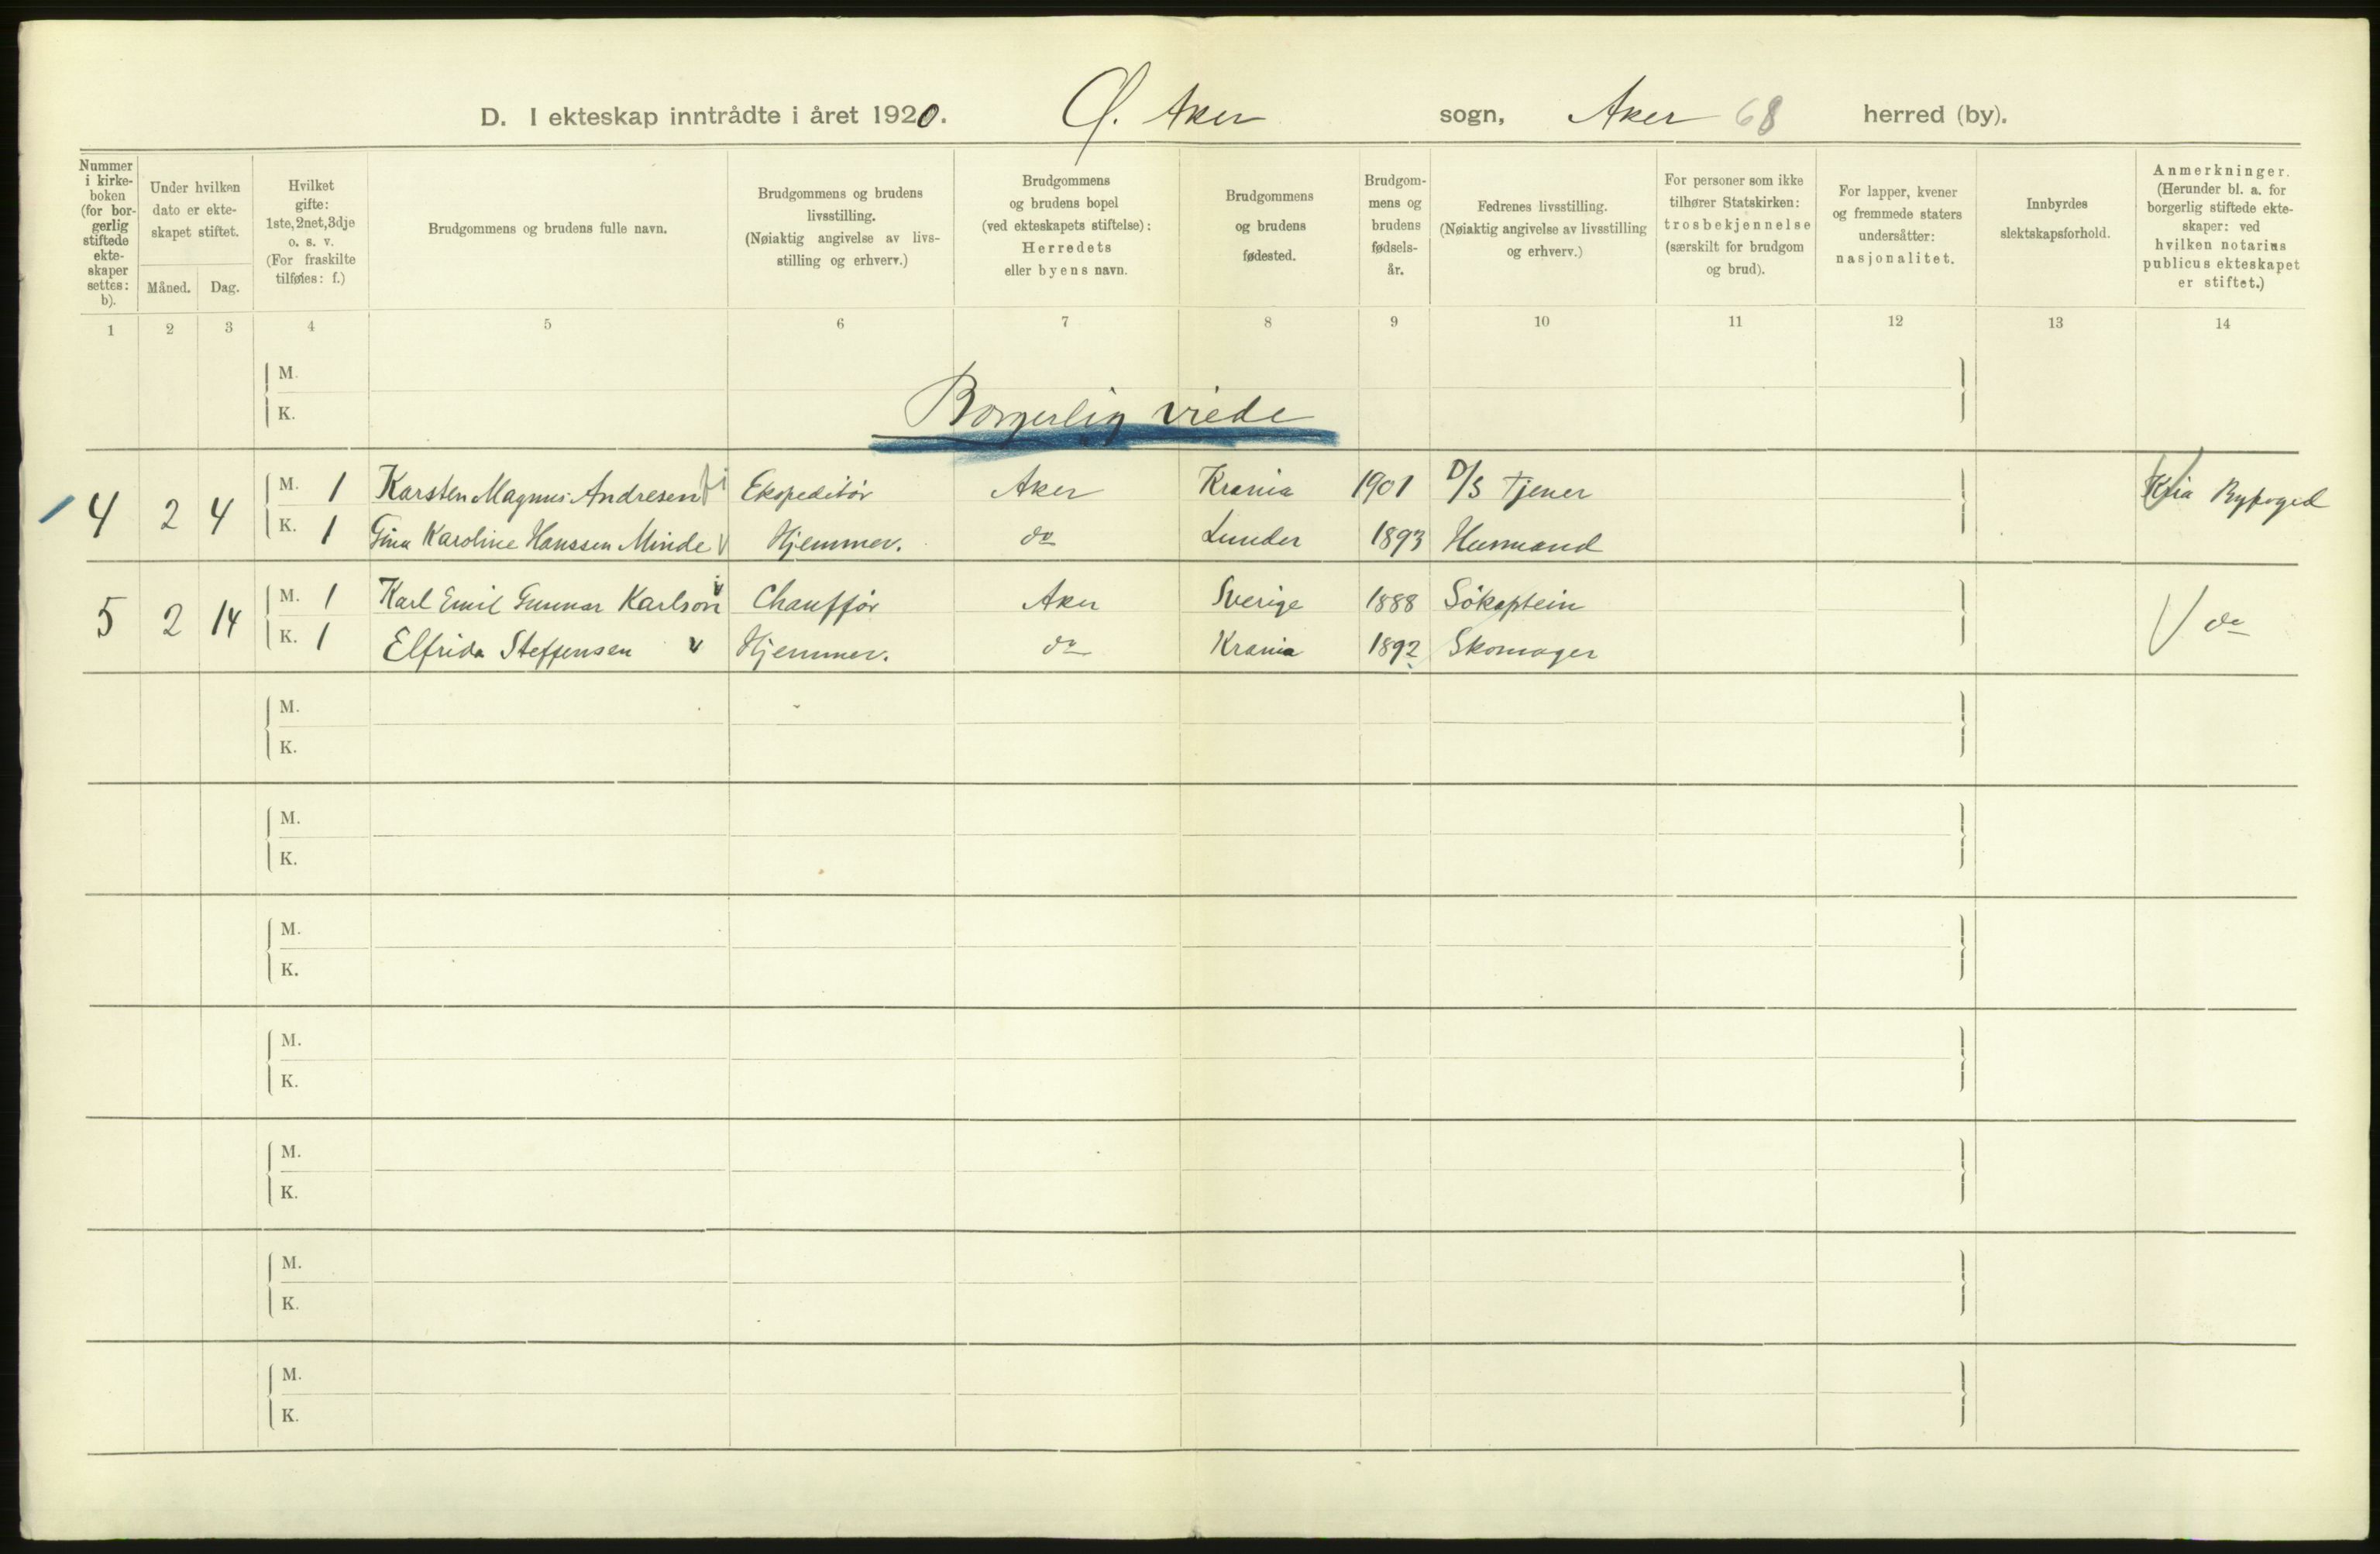 D. I ekteskap inntrådte i året 1920. Ø. Aker sogn, Aker 68 herred (by).
Nummer i kirke- boken (for bor- gerlig stiftede ekte- skaper settes: b).
Under hvilken dato er ekte- skapet stiftet.
Måned. Dag.
Hvilket gifte: 1ste, 2net, 3dje o. s. v. (For fraskilte tilføies: f.)
Brudgommens og brudens fulle navn.
Brudgommens og brudens livsstilling. (Nøiaktig angivelse av livs- stilling og erhverv.)
Brudgommens og brudens bopel (ved ekteskapets stiftelse): Herredets eller byens navn.
Brudgommens og brudens fødested.
Brudgom- mens og brudens fødsels- år.
Fedrenes livsstilling. (Nøiaktig angivelse av livsstilling og erhverv.)
For personer som ikke tilhører Statskirken: trosbekjennelse (særskilt for brudgom og brud).
For lapper, kvener og fremmede staters undersåtter: nasjonalitet.
Innbyrdes slektskapsforhold.
Anmerkninger. (Herunder bl. a. for borgerlig stiftede ekte- skaper: ved hvilken notarius publicus ekteskapet er stiftet.)
1 2 3 4 5 6 7 8 9 10 11 12 13 14
M.
K.
Borgerlig viede
4 2 4 M. 1 Karsten Magnus Andresen Ekspeditør Aker Krania 1901 D/S Tjener Kria Byfoged
K. 1 Gina Karoline Hanssen Minde Hjemmev. do Lunder 1893 Husmand
5 2 14 M. 1 Karl Emil Gunnar Karlson Chauffør Aker Sverige 1888 Sökaptein do
K. 1 Elfrida Steffensen Hjemmev. do Krania 1892 Skomager
M.
K.
M.
K.
M.
K.
M.
K.
M.
K.
M.
K.
M.
K.